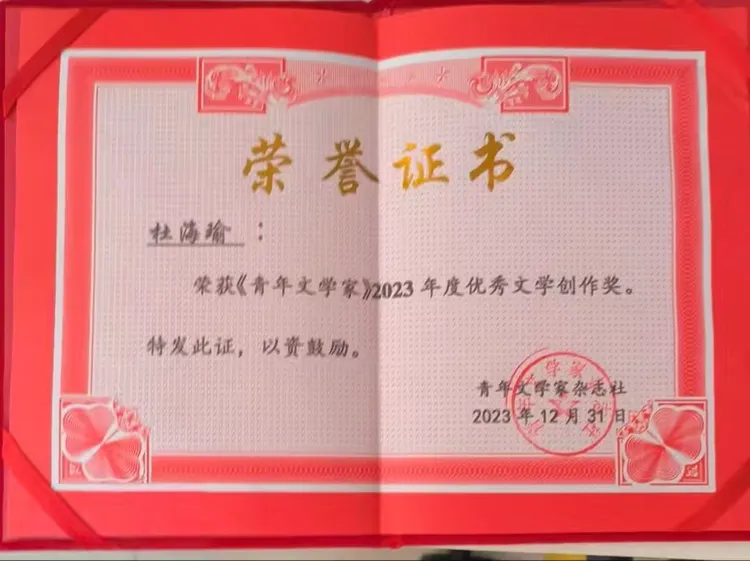 荣誉证书
杜海瑜：
荣获《青年文学家》2023年度优秀文学创作奖。
特发此证，以资鼓励。
青年文学家杂志社
2023年12月31日